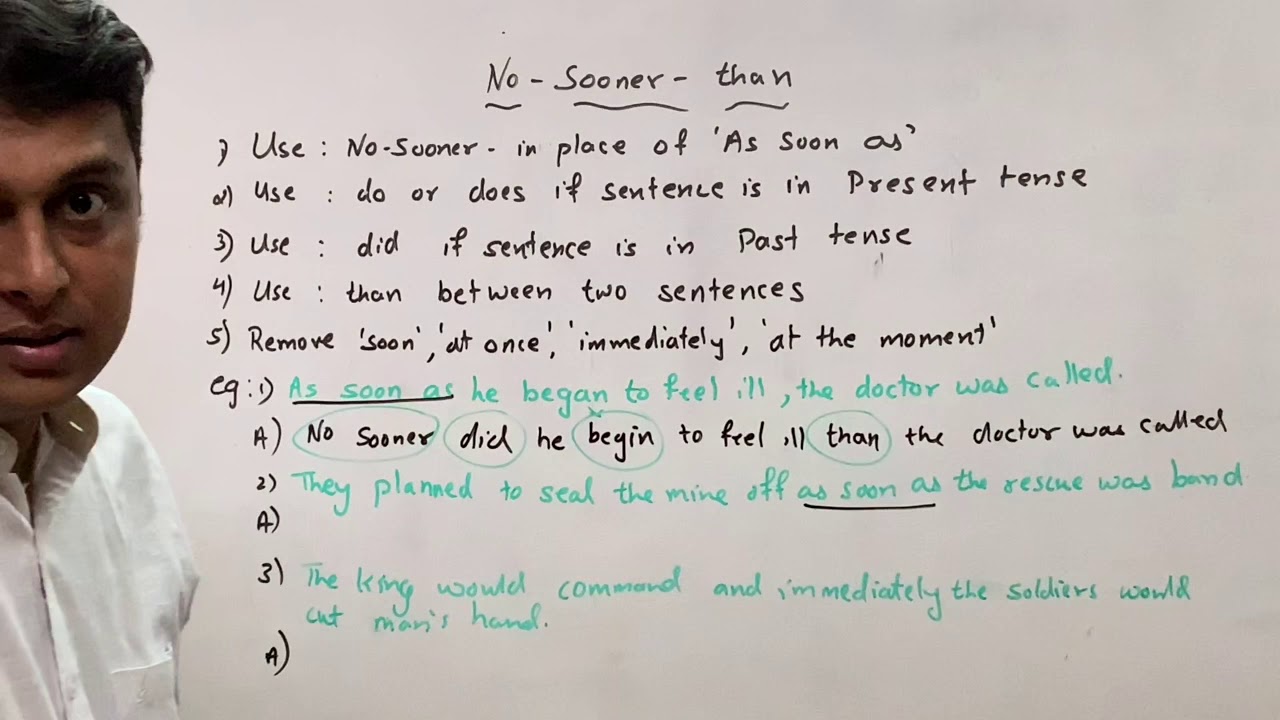 No - Sooner - than
1) Use : No-Sooner - in place of 'As Soon as'
2) Use : do or does if sentence is in Present tense
3) Use : did if sentence is in Past tense
4) Use : than between two sentences
5) Remove 'soon', 'at once', 'immediately', 'at the moment'
eg: 1) As soon as he began to feel ill, the doctor was called.
A) No Sooner did he begin to feel ill than the doctor was called
2) They planned to seal the mine off as soon as the rescue was band
A)
3) The king would command and immediately the soldiers would
cut man's hand.
A)